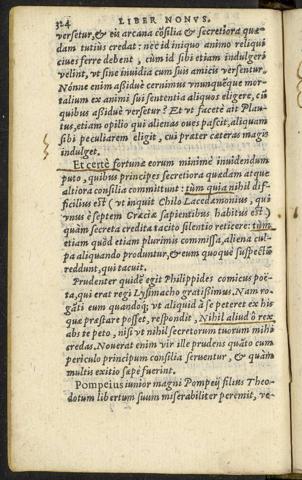 324 LIBER NONVS.
versetur, & eis arcana cōsilia & secretiora quæ-
dam tutiùs credat: nec id iniquo animo reliqui
ciues ferre debent, cùm id sibi etiam indulgeri
velint, vt sine inuidia cum suis amicis versentur.
Nónne enim aßiduè cernimus vnunquēque mor-
talium ex animi sui sententia aliquos eligere, cū
quibus aßiduè versetur? Et vt facetè ait Plau-
tus, etiam opilio qui alienas oues pascit, aliquam
sibi peculiarem eligit, cui præter cæteras magis
indulget.
Et certè fortunæ eorum minimè inuidendum
puto, quibus principes secretiora quædam atque
altiora consilia committunt: tùm quia nihil dif-
ficilius est (vt inquit Chilo Lacedæmonius, qui
vnus è septem Græciæ sapientibus habitus est)
quàm secreta credita tacito silentio reticere: tùm
etiam quòd etiam plurimis commissa, aliena cul-
pa aliquando produntur, & eum quoque suspectū
reddunt, qui tacuit.
Prudenter quidē egit Philippides comicus poë-
ta, qui erat regi Lysimacho gratißimus. Nam ro-
gāti eum quandoq; vt aliquid à se peteret ex his
quæ præstare posset, respondit, Nihil aliud ô rex
abs te peto, nisi vt nihil secretorum tuorum mihi
credas. Nouerat enim vir ille prudens quāto cum
periculo principum consilia seruentur, & quàm
multis exitio sæpe fuerint.
Pompeius iunior magni Pompeij filius Theo-
dotum libertum suum miserabiliter peremit, ve-